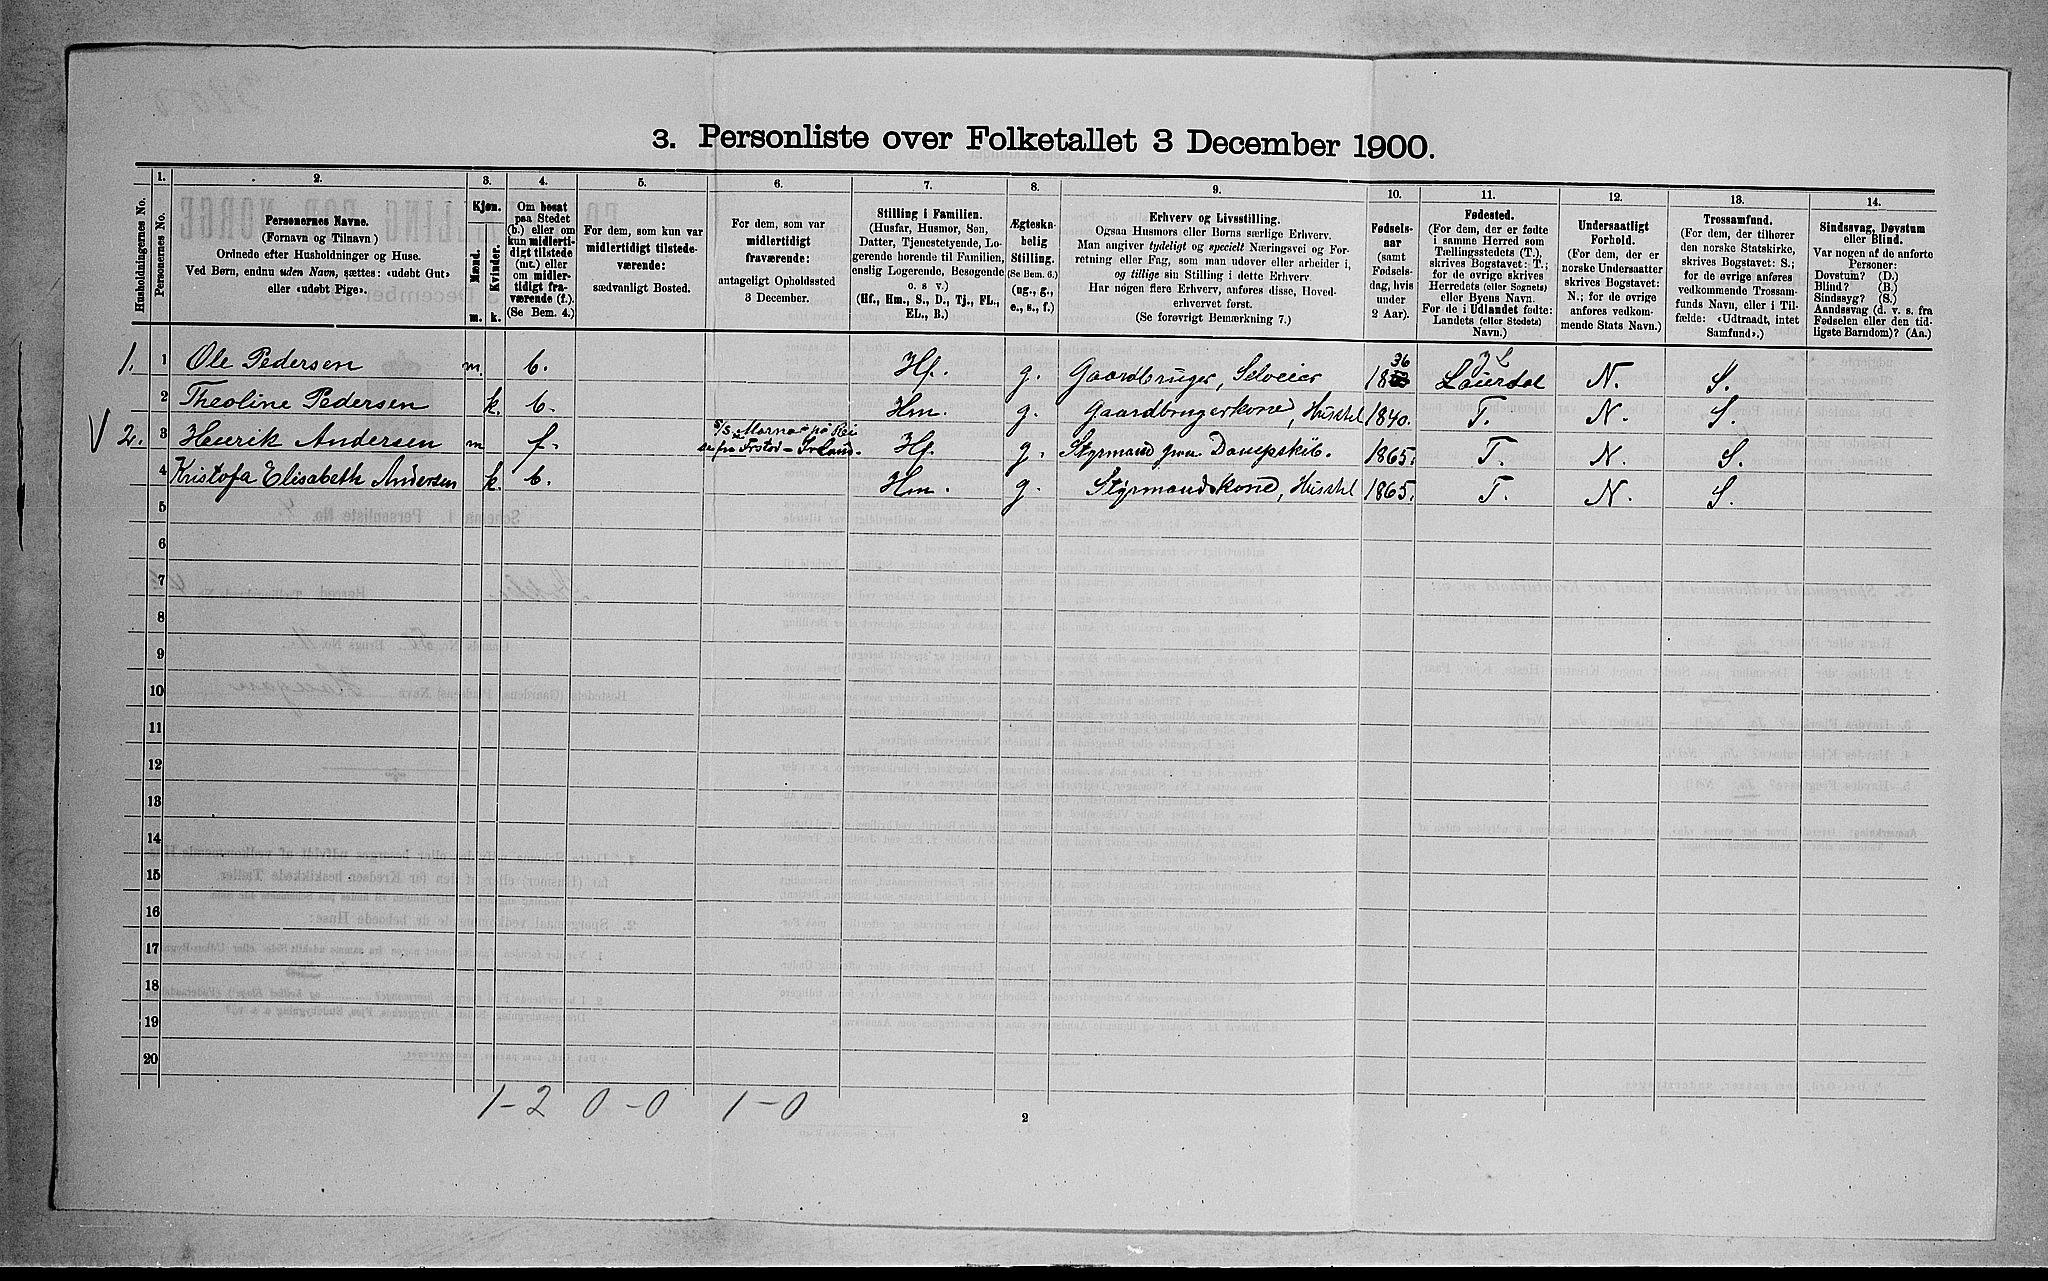 3. Personliste over Folketallet 3 December 1900.
1. 2. 3. 4. 5. 6. 7. 8. 9. 10. 11. 12. 13. 14.
Husholdningernes No.
Personernes No.
Personernes Navne.
(Fornavn og Tilnavn)
Ordnede efter Husholdninger og Huse.
Ved Børn, endnu uden Navn, sættes: «udøbt Gut»
eller «udøbt Pige».
Kjøn.
Mænd.
Kvinder.
m. k.
Om bosat
paa Stedet
(b.) eller om
kun midlerti-
digt tilstede
(mt.) eller
om midler-
tidigt fra-
værende (f.).
(Se Bem. 4.)
For dem, som kun var
midlertidigt tilstede-
værende:
sædvanligt Bosted.
For dem, som var
midlertidigt
fraværende:
antageligt Opholdssted
3 December.
Stilling i Familien.
(Husfar, Husmor, Søn,
Datter, Tjenestetyende, Lo-
gerende hørende til Familien,
enslig Logerende, Besøgende
o. s v.)
(Hf., Hm., S., D., Tj., FL.,
EL., B.)
Ægteska-
belig
Stilling.
(Se Bem. 6.)
(ug., g.,
e., s., f.)
Erhverv og Livsstilling.
Ogsaa Husmors eller Børns særlige Erhverv.
Man angiver tydeligt og specielt Næringsvei og For-
retning eller Fag, som man udøver eller arbeider i,
og tillige sin Stilling i dette Erhverv.
Har nogen flere Erhverv, anføres disse, Hoved-
erhvervet først.
(Se forøvrigt Bemærkning 7.)
Fødsels-
aar
(samt
Fødsels-
dag, hvis
under
2 Aar).
Fødested.
(For dem, der er fødte
i samme Herred som
Tællingsstedets (T.),
skrives Bogstavet: T.;
for de øvrige skrives
Herredets (eller Sognets)
eller Byens Navn.
For de i Udlandet fødte:
Landets (eller Stedets)
Navn.)
Undersaatligt
Forhold.
(For dem, der er
norske Undersaatter
skrives Bogstavet:
N.; for de øvrige
anføres vedkom-
mende Stats Navn.)
Trossamfund.
(For dem, der tilhører
den norske Statskirke,
skrives Bogstavet: S.;
for de øvrige anføres
vedkommende Trossam-
funds Navn, eller i Til-
fælde: «Udtraadt, intet
Samfund».)
Sindssvag, Døvstum
eller Blind.
Var nogen af de anførte
Personer:
Døvstum? (D.)
Blind? (B.)
Sindssyg? (S.)
Aandssvag (d. v. s. fra
Fødselen eller den tid-
ligste Barndom)? (Aa.)
1. 1 Ole Pedersen m. b. Hf. g. Gaardbruger, Selveier 1836 Laierdal N. S.
2 Theoline Pedersen k. b. Hm. g. Gaardbrugerkone, Husstel 1840. T. N. S.
V 2. 3 Henrik Andersen m f. Hf. g. Styrmand paa Dampskib. 1865. T. N. S.
4 Kristofa Elisabeth Andersen k. b. Hm. g. Styrmandskone, Husstel 1865. T. N. S.
5
6
7
8
9
10
11
12
13
14
15
16
17
18
19
20
1-2 0-0 1-0
2